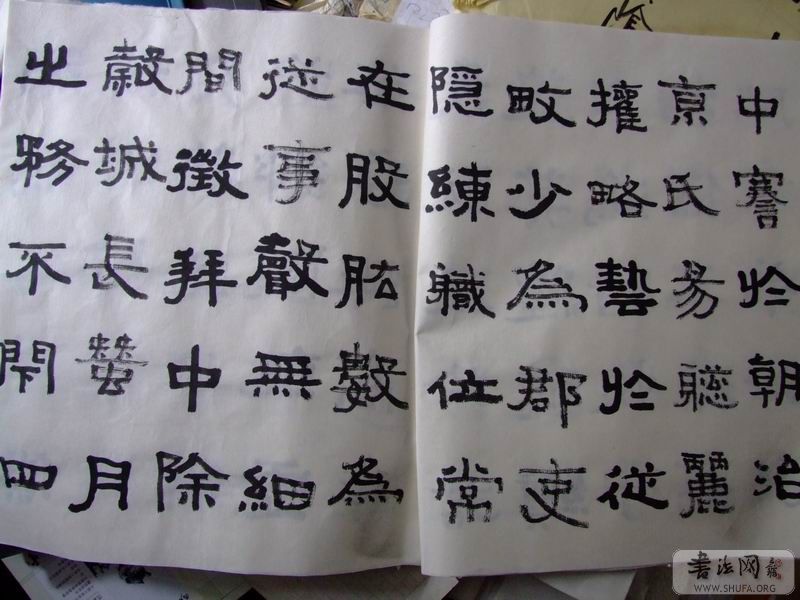 中謇於朝治
京氏易聰麗
權略藝於從
畋少為郡吏
隱練職位常
在股肱數為
從事聲無細
間徵拜中除
穀城長蠶月
之務不閇四
书法网
WWW.SHUFA.ORG